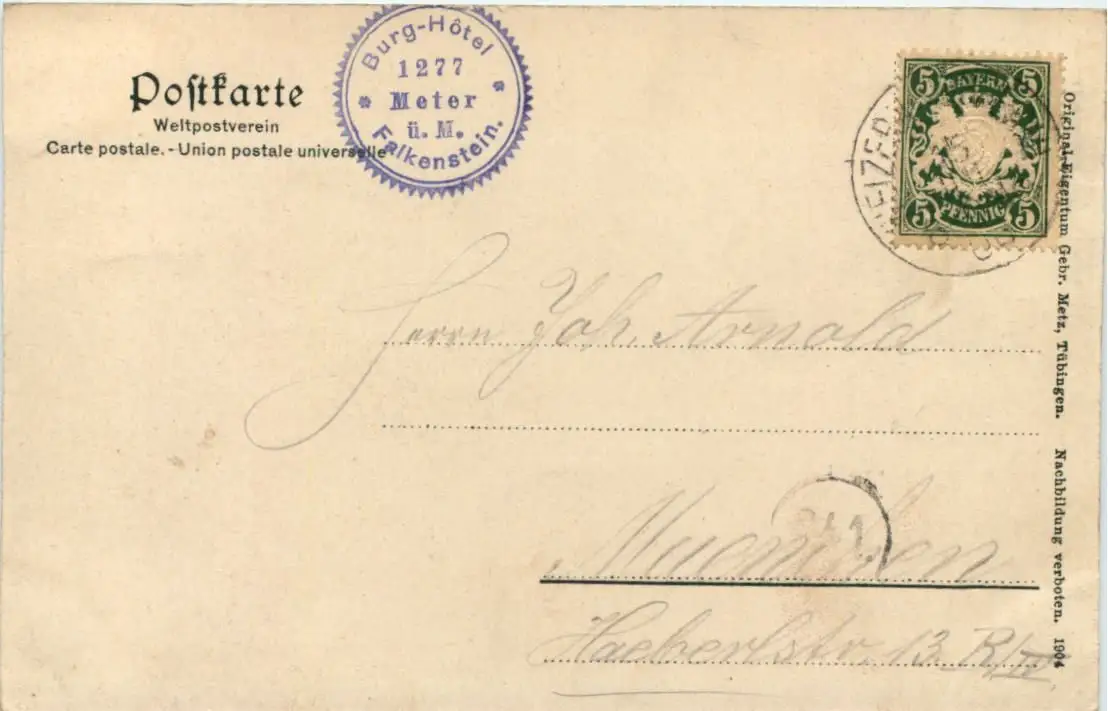 Postkarte
Weltpostverein
Carte postale. - Union postale universelle
Burg-Hôtel
1277
Meter
ü. M.
Falkenstein.
5 BAYERN 5
5 PFENNIG 5
Herrn Joh. Arnold
Muenchen
Haeberlstr. 13 R/IV
Original-Eigentum Gebr. Metz, Tübingen. Nachbildung verboten. 1904